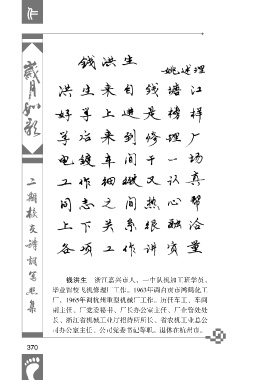 钱洪生
姚述理
洪生来自钱塘江
好学上进是榜样
学冶来到修理厂
电镀车间干一场
工作细緻又认真
同志之间热心帮
上下关系很融洽
各项工作讲质量
钱洪生 浙江嘉兴市人、一中队机加工班学员、
毕业留校飞机修理厂工作。1963年调自贡市鸿鹤化工
厂、1965年调杭州重型机械厂工作。历任车工、车间
副主任、厂党委秘书、厂长办公室主任、厂企管处处
长、浙江省机械工业厅招待所所长、省农机工业总公
司办公室主任、公司党委书记等职。退休在杭州市。
岁月如歌
二期校友诗词写照集
370